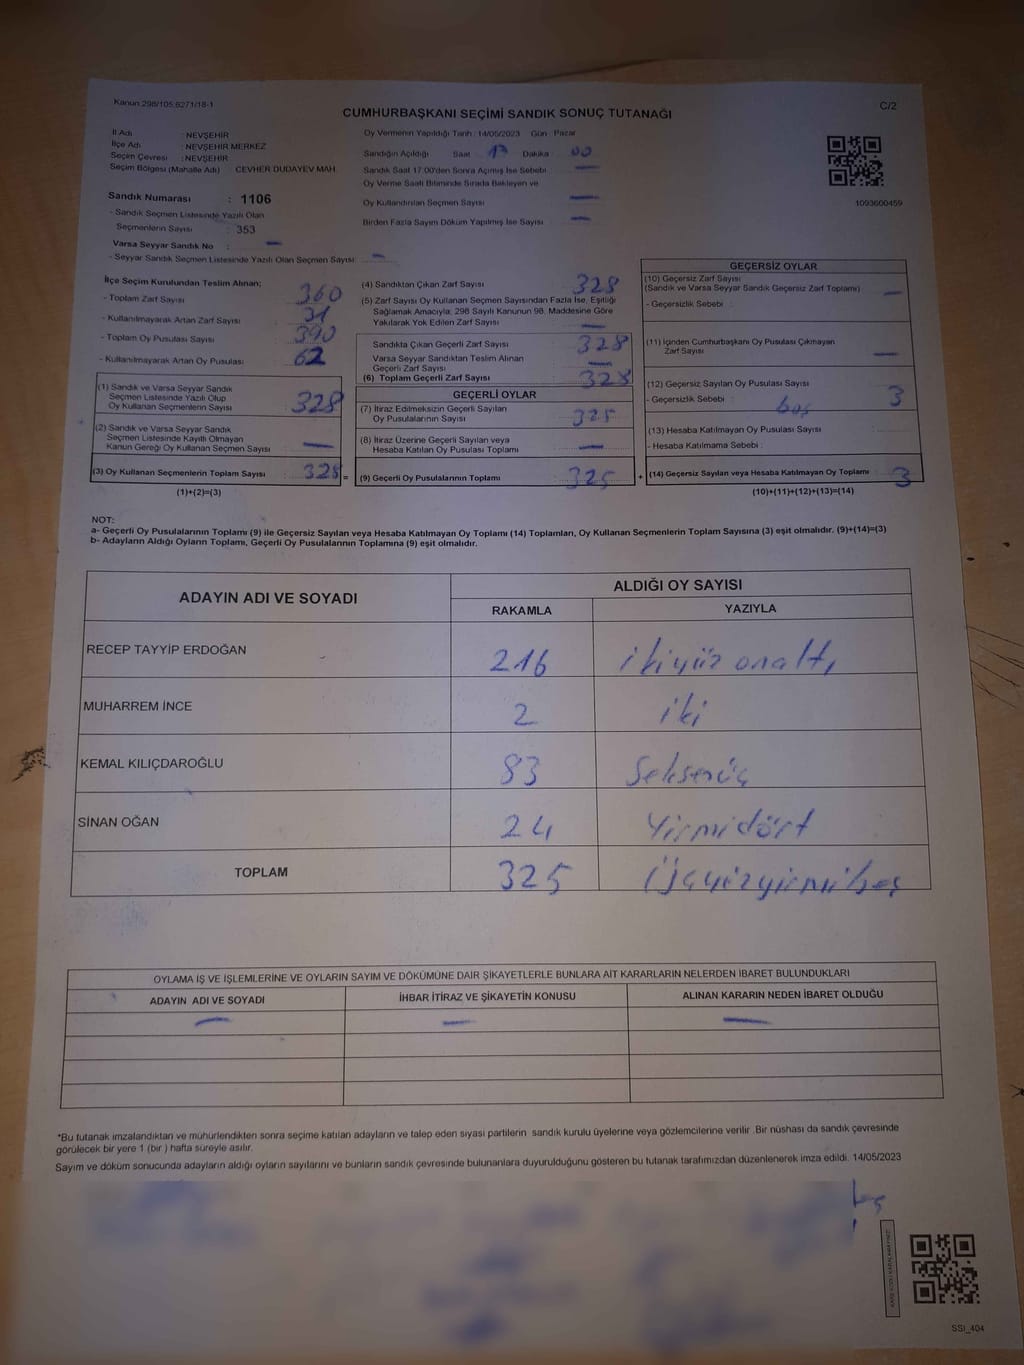 Kanun:298/105,6271/18-1
C/2
CUMHURBAŞKANI SEÇİMİ SANDIK SONUÇ TUTANAĞI
İl Adı : NEVŞEHİR
İlçe Adı : NEVŞEHİR MERKEZ
Seçim Çevresi : NEVŞEHİR
Seçim Bölgesi (Mahalle Adı) CEVHER DUDAYEV MAH.
Oy Vermenin Yapıldığı Tarih : 14/05/2023 Gün : Pazar
Sandığın Açıldığı Saat : 17 Dakika : 00
Sandık Saat 17:00'den Sonra Açılmış İse Sebebi : —
Oy Verme Saati Bitiminde Sırada Bekleyen ve
Oy Kullandırılan Seçmen Sayısı : —
Birden Fazla Sayım Döküm Yapılmış İse Sayısı : —
1093600459
Sandık Numarası : 1106
- Sandık Seçmen Listesinde Yazılı Olan
Seçmenlerin Sayısı : 353
Varsa Seyyar Sandık No : —
- Seyyar Sandık Seçmen Listesinde Yazılı Olan Seçmen Sayısı : —
İlçe Seçim Kurulundan Teslim Alınan;
- Toplam Zarf Sayısı : 360
- Kullanılmayarak Artan Zarf Sayısı : 31
- Toplam Oy Pusulası Sayısı : 390
- Kullanılmayarak Artan Oy Pusulası : 62
(1) Sandık ve Varsa Seyyar Sandık
Seçmen Listesinde Yazılı Olup
Oy Kullanan Seçmenlerin Sayısı : 328
(2) Sandık ve Varsa Seyyar Sandık
Seçmen Listesinde Kayıtlı Olmayan
Kanun Gereği Oy Kullanan Seçmen Sayısı : —
(3) Oy Kullanan Seçmenlerin Toplam Sayısı : 328 =
(1)+(2)=(3)
(4) Sandıktan Çıkan Zarf Sayısı : 328
(5) Zarf Sayısı Oy Kullanan Seçmen Sayısından Fazla İse, Eşitliği
Sağlamak Amacıyla; 298 Sayılı Kanunun 98. Maddesine Göre
Yakılarak Yok Edilen Zarf Sayısı : —
Sandıkta Çıkan Geçerli Zarf Sayısı : 328
Varsa Seyyar Sandıktan Teslim Alınan
Geçerli Zarf Sayısı : —
(6) Toplam Geçerli Zarf Sayısı : 328
GEÇERLİ OYLAR
(7) İtiraz Edilmeksizin Geçerli Sayılan
Oy Pusulalarının Sayısı : 325
(8) İtiraz Üzerine Geçerli Sayılan veya
Hesaba Katılan Oy Pusulası Toplamı : —
(9) Geçerli Oy Pusulalarının Toplamı : 325 +
GEÇERSİZ OYLAR
(10) Geçersiz Zarf Sayısı
(Sandık ve Varsa Seyyar Sandık Geçersiz Zarf Toplamı) : —
- Geçersizlik Sebebi :
(11) İçinden Cumhurbaşkanı Oy Pusulası Çıkmayan
Zarf Sayısı : —
(12) Geçersiz Sayılan Oy Pusulası Sayısı
- Geçersizlik Sebebi : boş 3
(13) Hesaba Katılmayan Oy Pusulası Sayısı :
- Hesaba Katılmama Sebebi :
(14) Geçersiz Sayılan veya Hesaba Katılmayan Oy Toplamı : 3
(10)+(11)+(12)+(13)=(14)
NOT:
a- Geçerli Oy Pusulalarının Toplamı (9) ile Geçersiz Sayılan veya Hesaba Katılmayan Oy Toplamı (14) Toplamları, Oy Kullanan Seçmenlerin Toplam Sayısına (3) eşit olmalıdır. (9)+(14)=(3)
b- Adayların Aldığı Oyların Toplamı, Geçerli Oy Pusulalarının Toplamına (9) eşit olmalıdır.
ADAYIN ADI VE SOYADI ALDIĞI OY SAYISI
RAKAMLA YAZIYLA
RECEP TAYYİP ERDOĞAN 216 ikiyüz onaltı
MUHARREM İNCE 2 iki
KEMAL KILIÇDAROĞLU 83 Seksenüç
SİNAN OĞAN 24 Yirmidört
TOPLAM 325 Üçyüzyirmibeş
OYLAMA İŞ VE İŞLEMLERİNE VE OYLARIN SAYIM VE DÖKÜMÜNE DAİR ŞİKAYETLERLE BUNLARA AİT KARARLARIN NELERDEN İBARET BULUNDUKLARI
ADAYIN ADI VE SOYADI İHBAR İTİRAZ VE ŞİKAYETİN KONUSU ALINAN KARARIN NEDEN İBARET OLDUĞU
— — —
*Bu tutanak imzalandıktan ve mühürlendikten sonra seçime katılan adayların ve talep eden siyasi partilerin sandık kurulu üyelerine veya gözlemcilerine verilir .Bir nüshası da sandık çevresinde
görülecek bir yere 1 (bir ) hafta süreyle asılır.
Sayım ve döküm sonucunda adayların aldığı oyların sayılarını ve bunların sandık çevresinde bulunanlara duyurulduğunu gösteren bu tutanak tarafımızdan düzenlenerek imza edildi. 14/05/2023
SSI_404